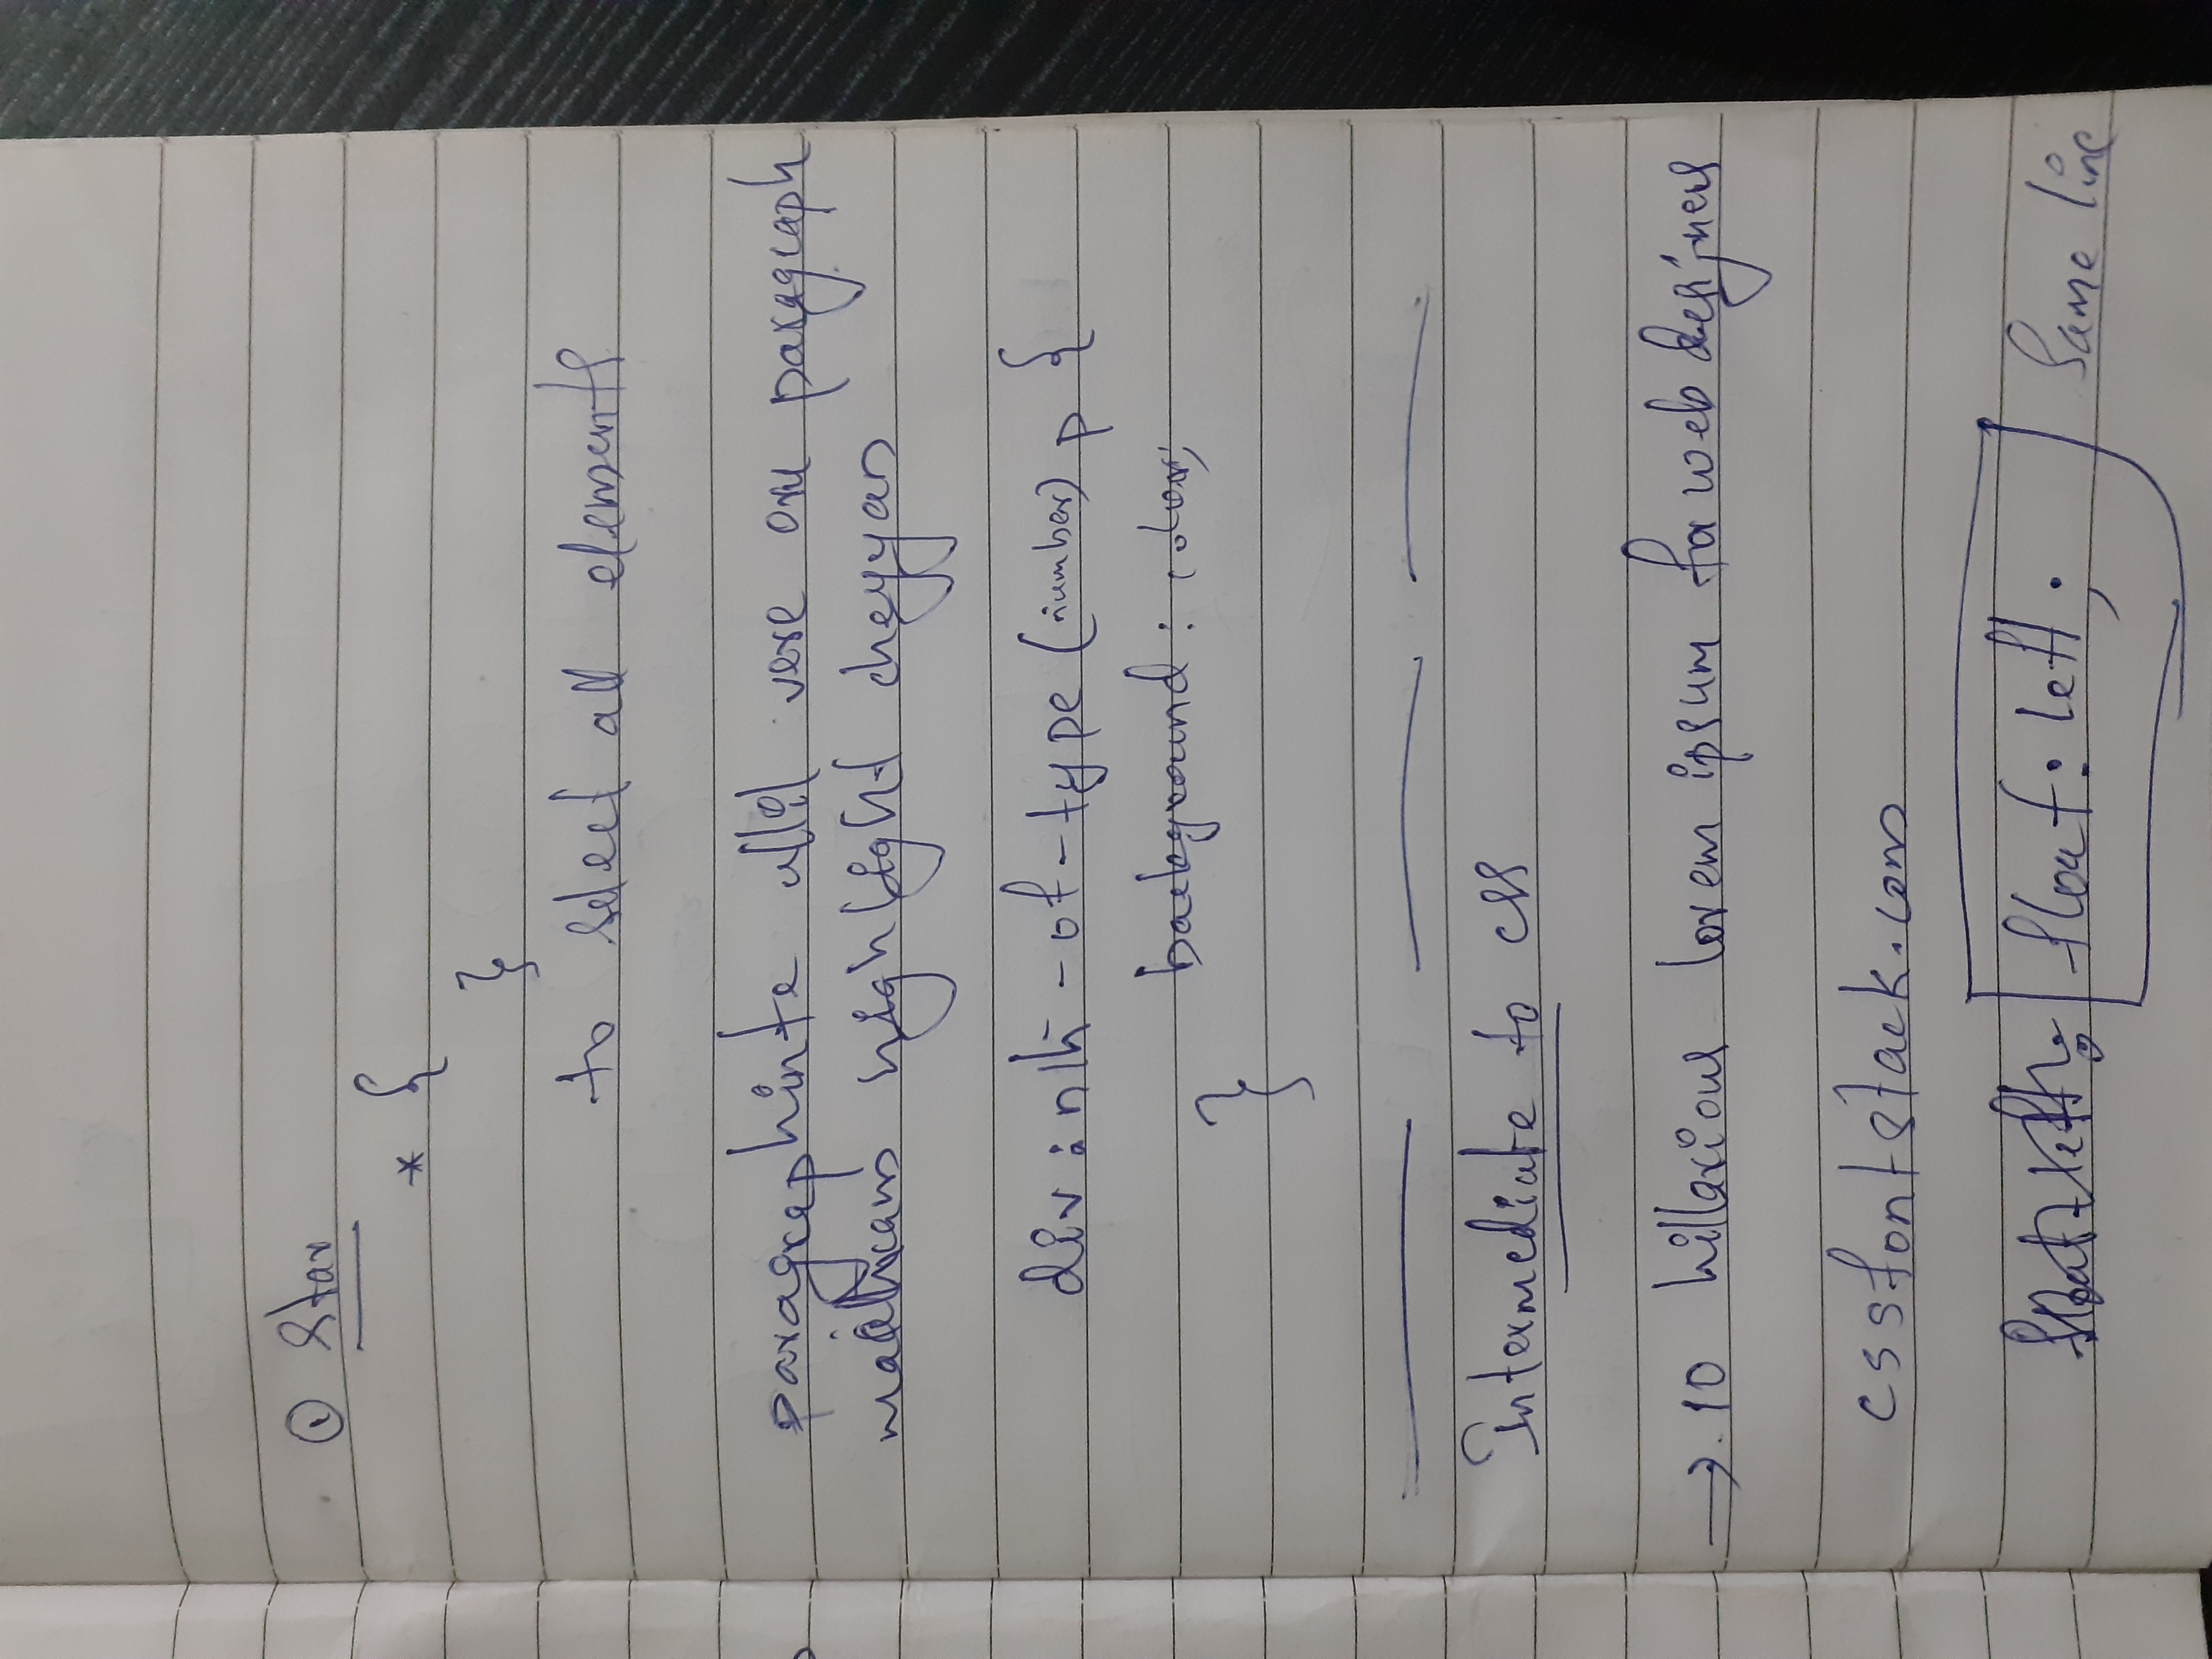 ① Star
* {
}
to select all elements
paragraphinte ullil vere oru paragraph
maathram highlight cheyyan
div : nth - of - type (number) p {
background : color;
}
Intermediate to css
→ 10 hillarious lorem ipsum for web designers
cssfontstack.com
float : left; Same line